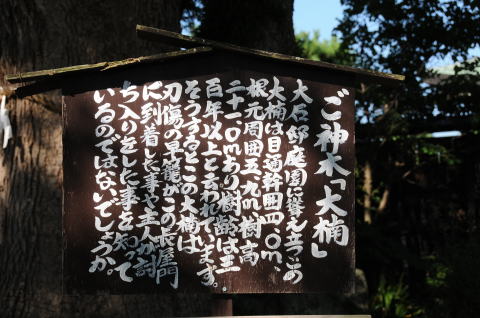 ご神木「大楠」
大石邸庭園に聳え立つこの
大楠は目通幹囲四、〇m、
根元周囲五、九m、樹高
二十一、〇mあり樹齢は三
百年以上と云われています。
そうするとこの大楠は
刃傷の早籠がこの長屋門
に到着した事や主人が討
ち入りをした事を知って
いるのではないでしょうか。